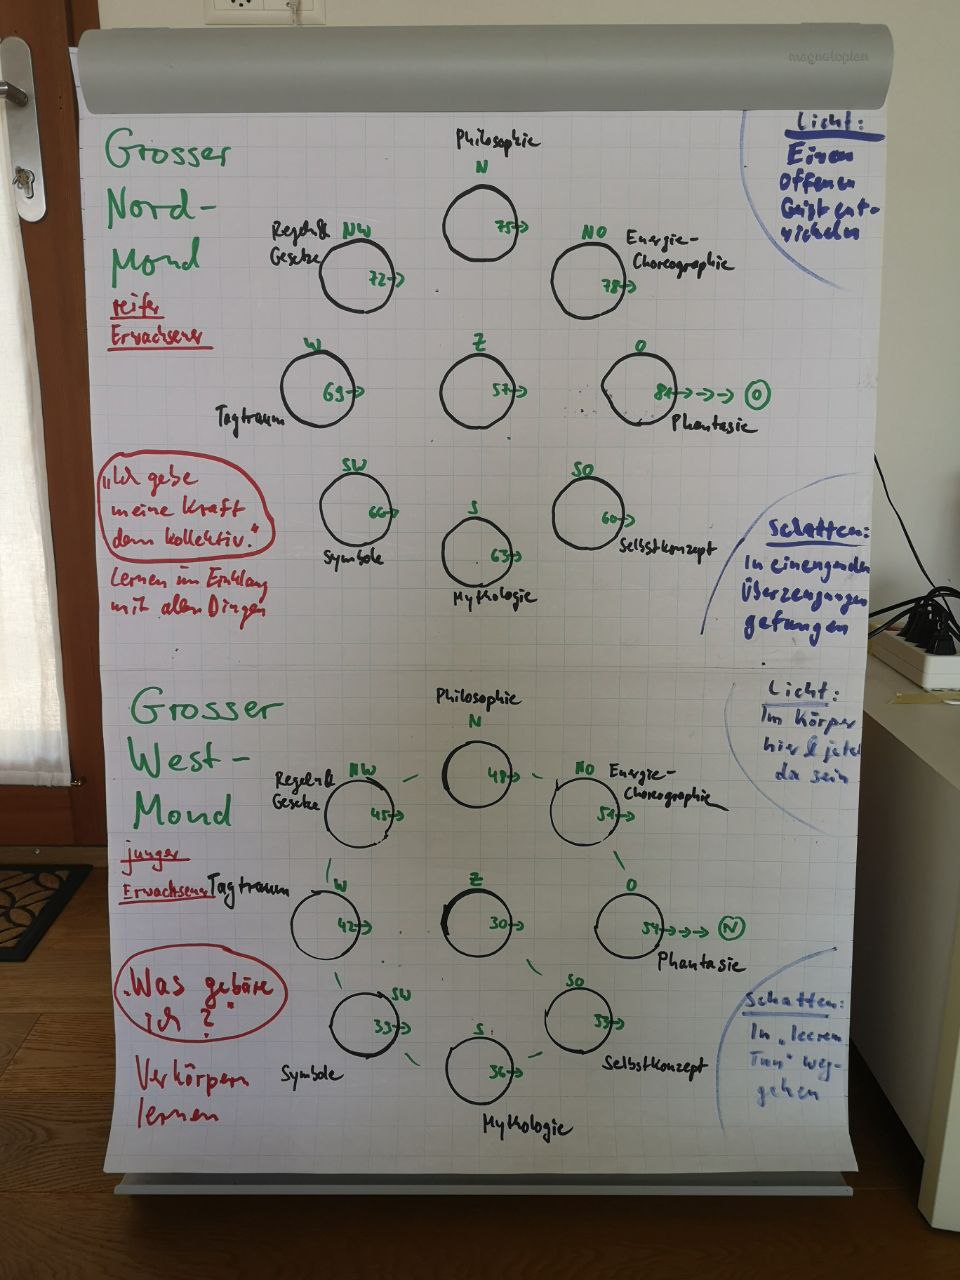 magnetoplan
Grosser
Nord-
Mond
reifer
Erwachsener
Philosophie
N
75→
Regeln &
Gesetze
NW
72→
NO
78→
Energie-
Choreographie
Licht:
Einen
Offenen
Geist ent-
wickeln
W
69→
Tagtraum
Z
57→
O
81→→→→ O
Phantasie
"Ich gebe
meine Kraft
dem Kollektiv."
Lernen im Einklang
mit allen Dingen
SW
66→
Symbole
S
63→
Mythologie
SO
60→
Selbstkonzept
Schatten:
In einengenden
Überzeugungen
gefangen
Grosser
West-
Mond
junger
Erwachsener
Philosophie
N
48→
Regeln &
Gesetze
NW
45→
NO
51→
Energie-
Choreographie
Licht:
Im Körper
hier & jetzt
da sein
Tagtraum
W
42→
Z
30→
O
54→→→→ N
Phantasie
"Was gebäre
ich?"
Verkörpern
lernen
SW
39→
Symbole
S
36→
Mythologie
SO
33→
Selbstkonzept
Schatten:
In "leerem
Tun" weg-
gehen